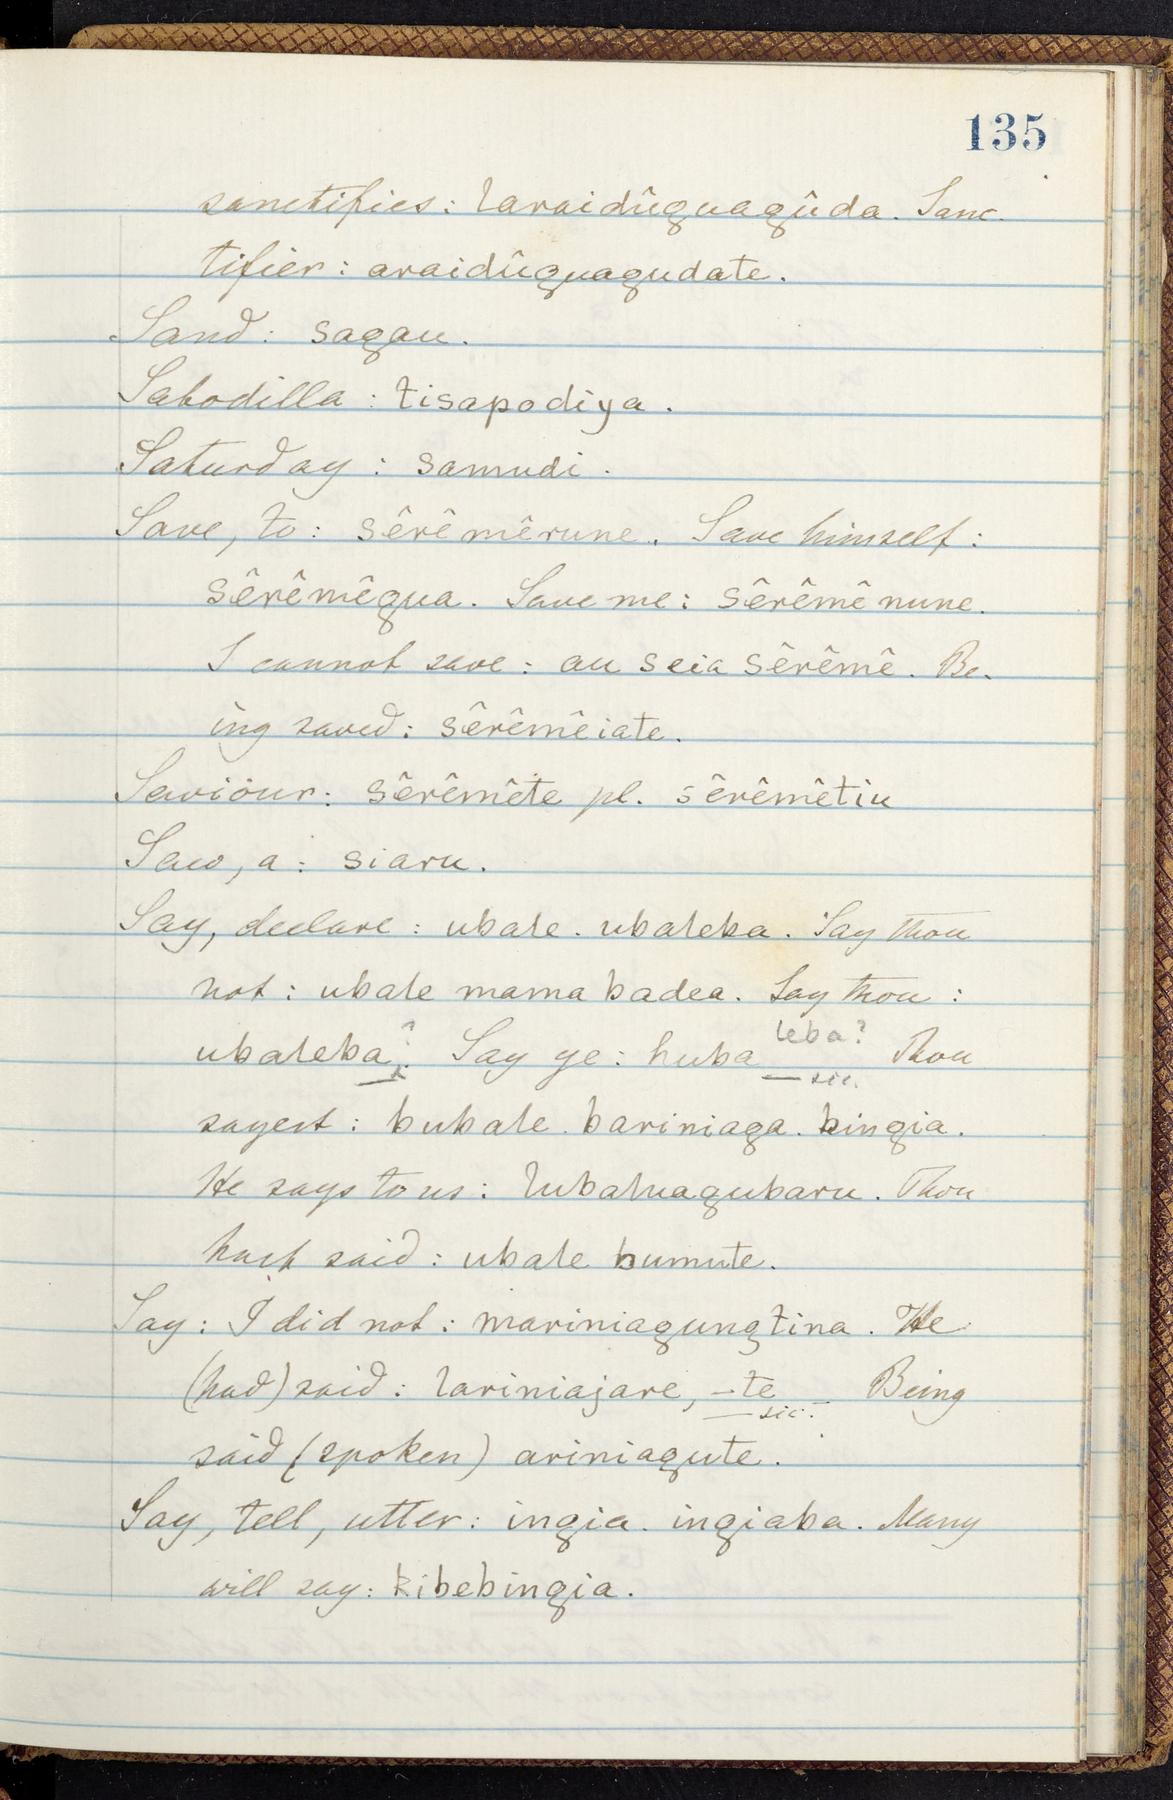 135
sanctifies: laraidûguagûda. Sanc-
tifier: araidûguagudate.
Sand: sagau.
Sabodilla: tisapodiya.
Saturday: samudi.
Save, to: sêrêmêrune. Save himself:
sêrêmêgua. Save me: sêrêmê nune.
I cannot save: au seia sêrêmê. Be-
ing saved: sêrêmêiate.
Saviour: sêrêmête pl. sêrêmêtiu
Saw, a: siaru.
Say, declare: ubale. ubaleba. Say thou
not: ubale mama badea. Say thou:
leba?
ubaleba? Say ye: huba Thou
sic.
sayest: bubale. bariniaga. bingia.
He says to us: lubaluagubaru. Thou
hast said: ubale bumute.
Say: I did not: mariniagungtina. He
(had) said: lariniajare, -te Being
sic.
said (spoken) ariniagute.
Say, tell, utter: ingia. ingiaba. Many
will say: kibebingia.